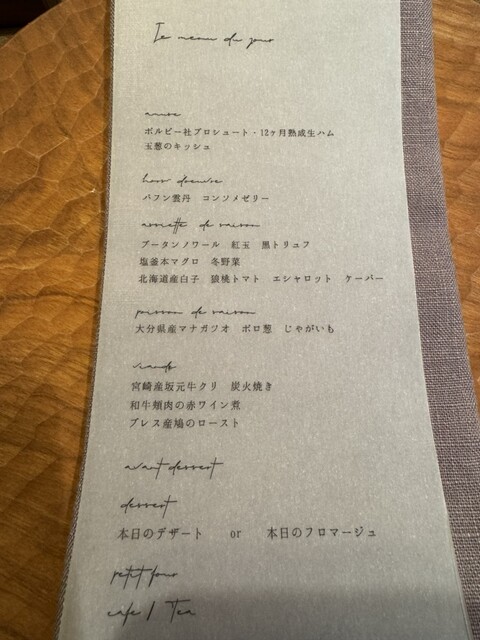 Le menu du jour
amuse
ボルビー社プロシュート・12ヶ月熟成生ハム
玉葱のキッシュ
hors doeuvre
バフン雲丹　コンソメゼリー
assiette de saison
ブータンノワール　紅玉　黒トリュフ
塩釜本マグロ　冬野菜
北海道産白子　狼桃トマト　エシャロット　ケーパー
poisson de saison
大分県産マナガツオ　ポロ葱　じゃがいも
viande
宮崎産坂元牛クリ　炭火焼き
和牛頬肉の赤ワイン煮
ブレス産鳩のロースト
avant dessert
dessert
本日のデザート　or　本日のフロマージュ
petit four
cafe / Tea